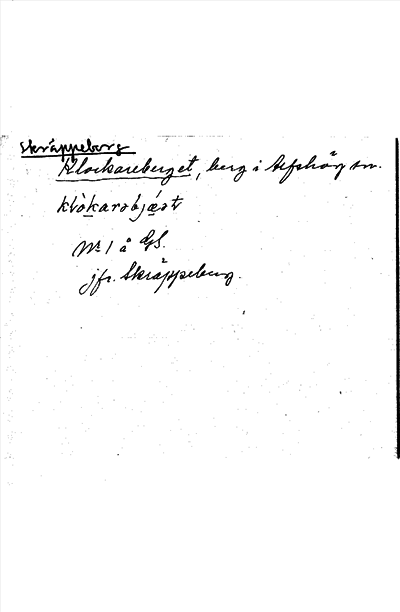 Skräppeberg
Klockareberget, berg i Alfshög sn.
klȯkarəbjæ̣ət
Nr 1 å GS.
jfr. Skräppeberg.